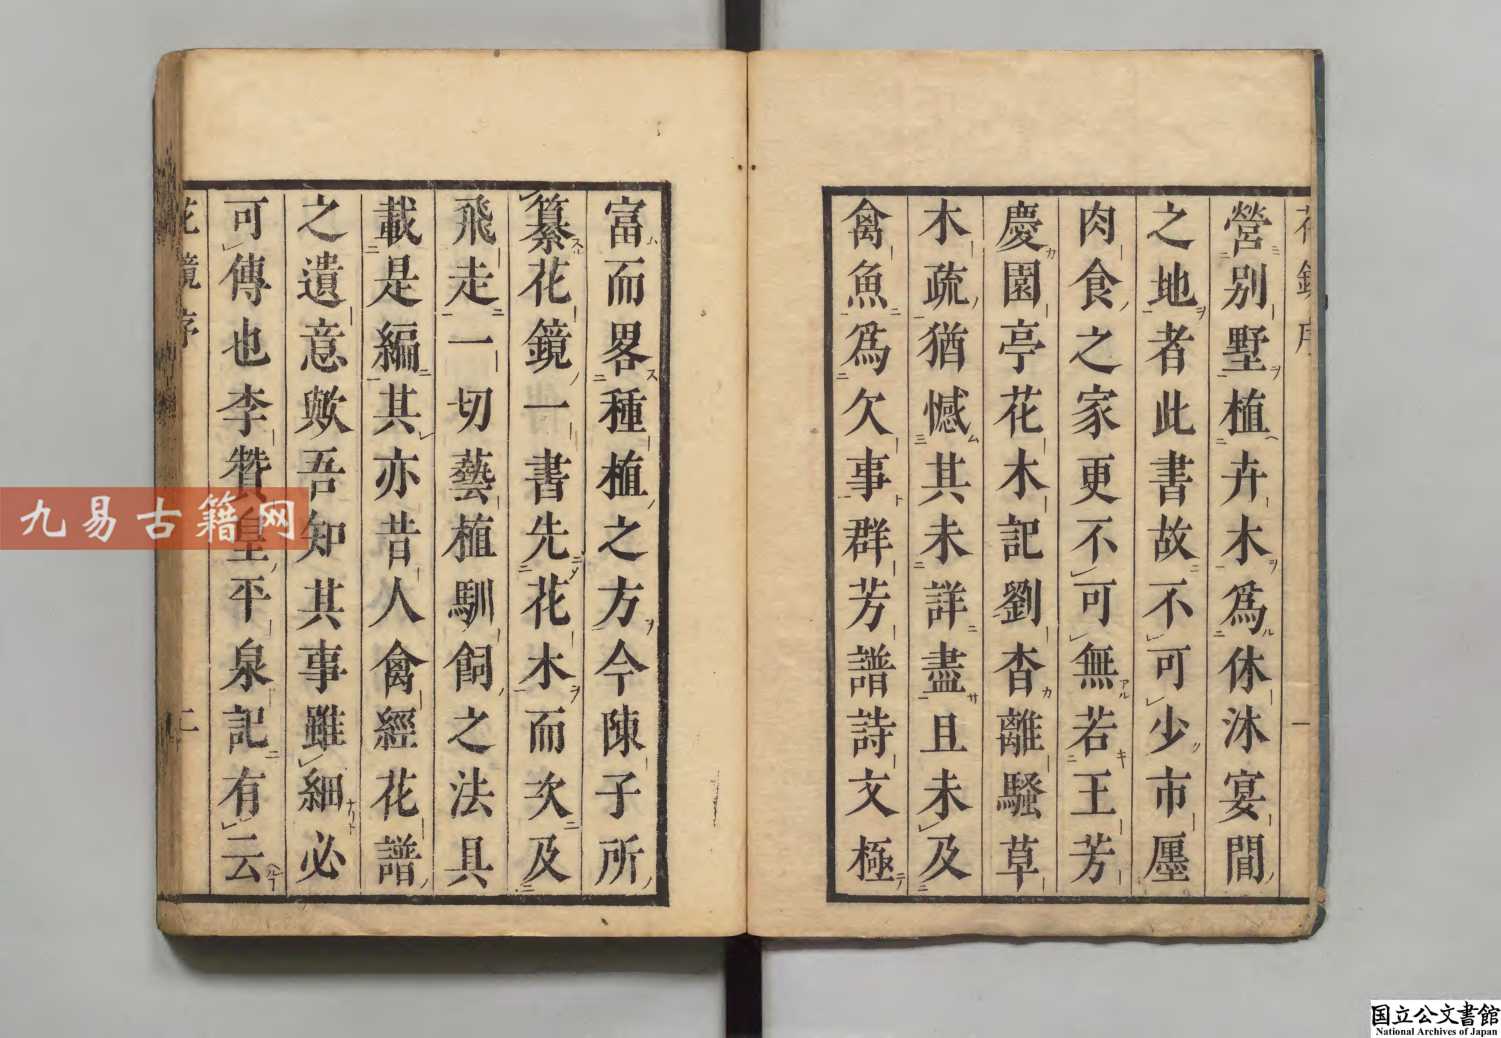 營别墅植卉木爲休沐宴閒
之地者此書故不可少市廛
肉食之家更不可無若王芳
慶園亭花木記劉杳離騷草
木疏猶憾其未詳盡且未及
禽魚爲欠事群芳譜詩文極
富而畧種植之方今陳子所
纂花鏡一書先花木而次及
飛走一切藝植馴飼之法具
載是編其亦昔人禽經花譜
之遺意歟吾知其事雖細必
可傳也李贊皇平泉記有云
花鏡序
二
九易古籍网
国立公文書館
National Archives of Japan